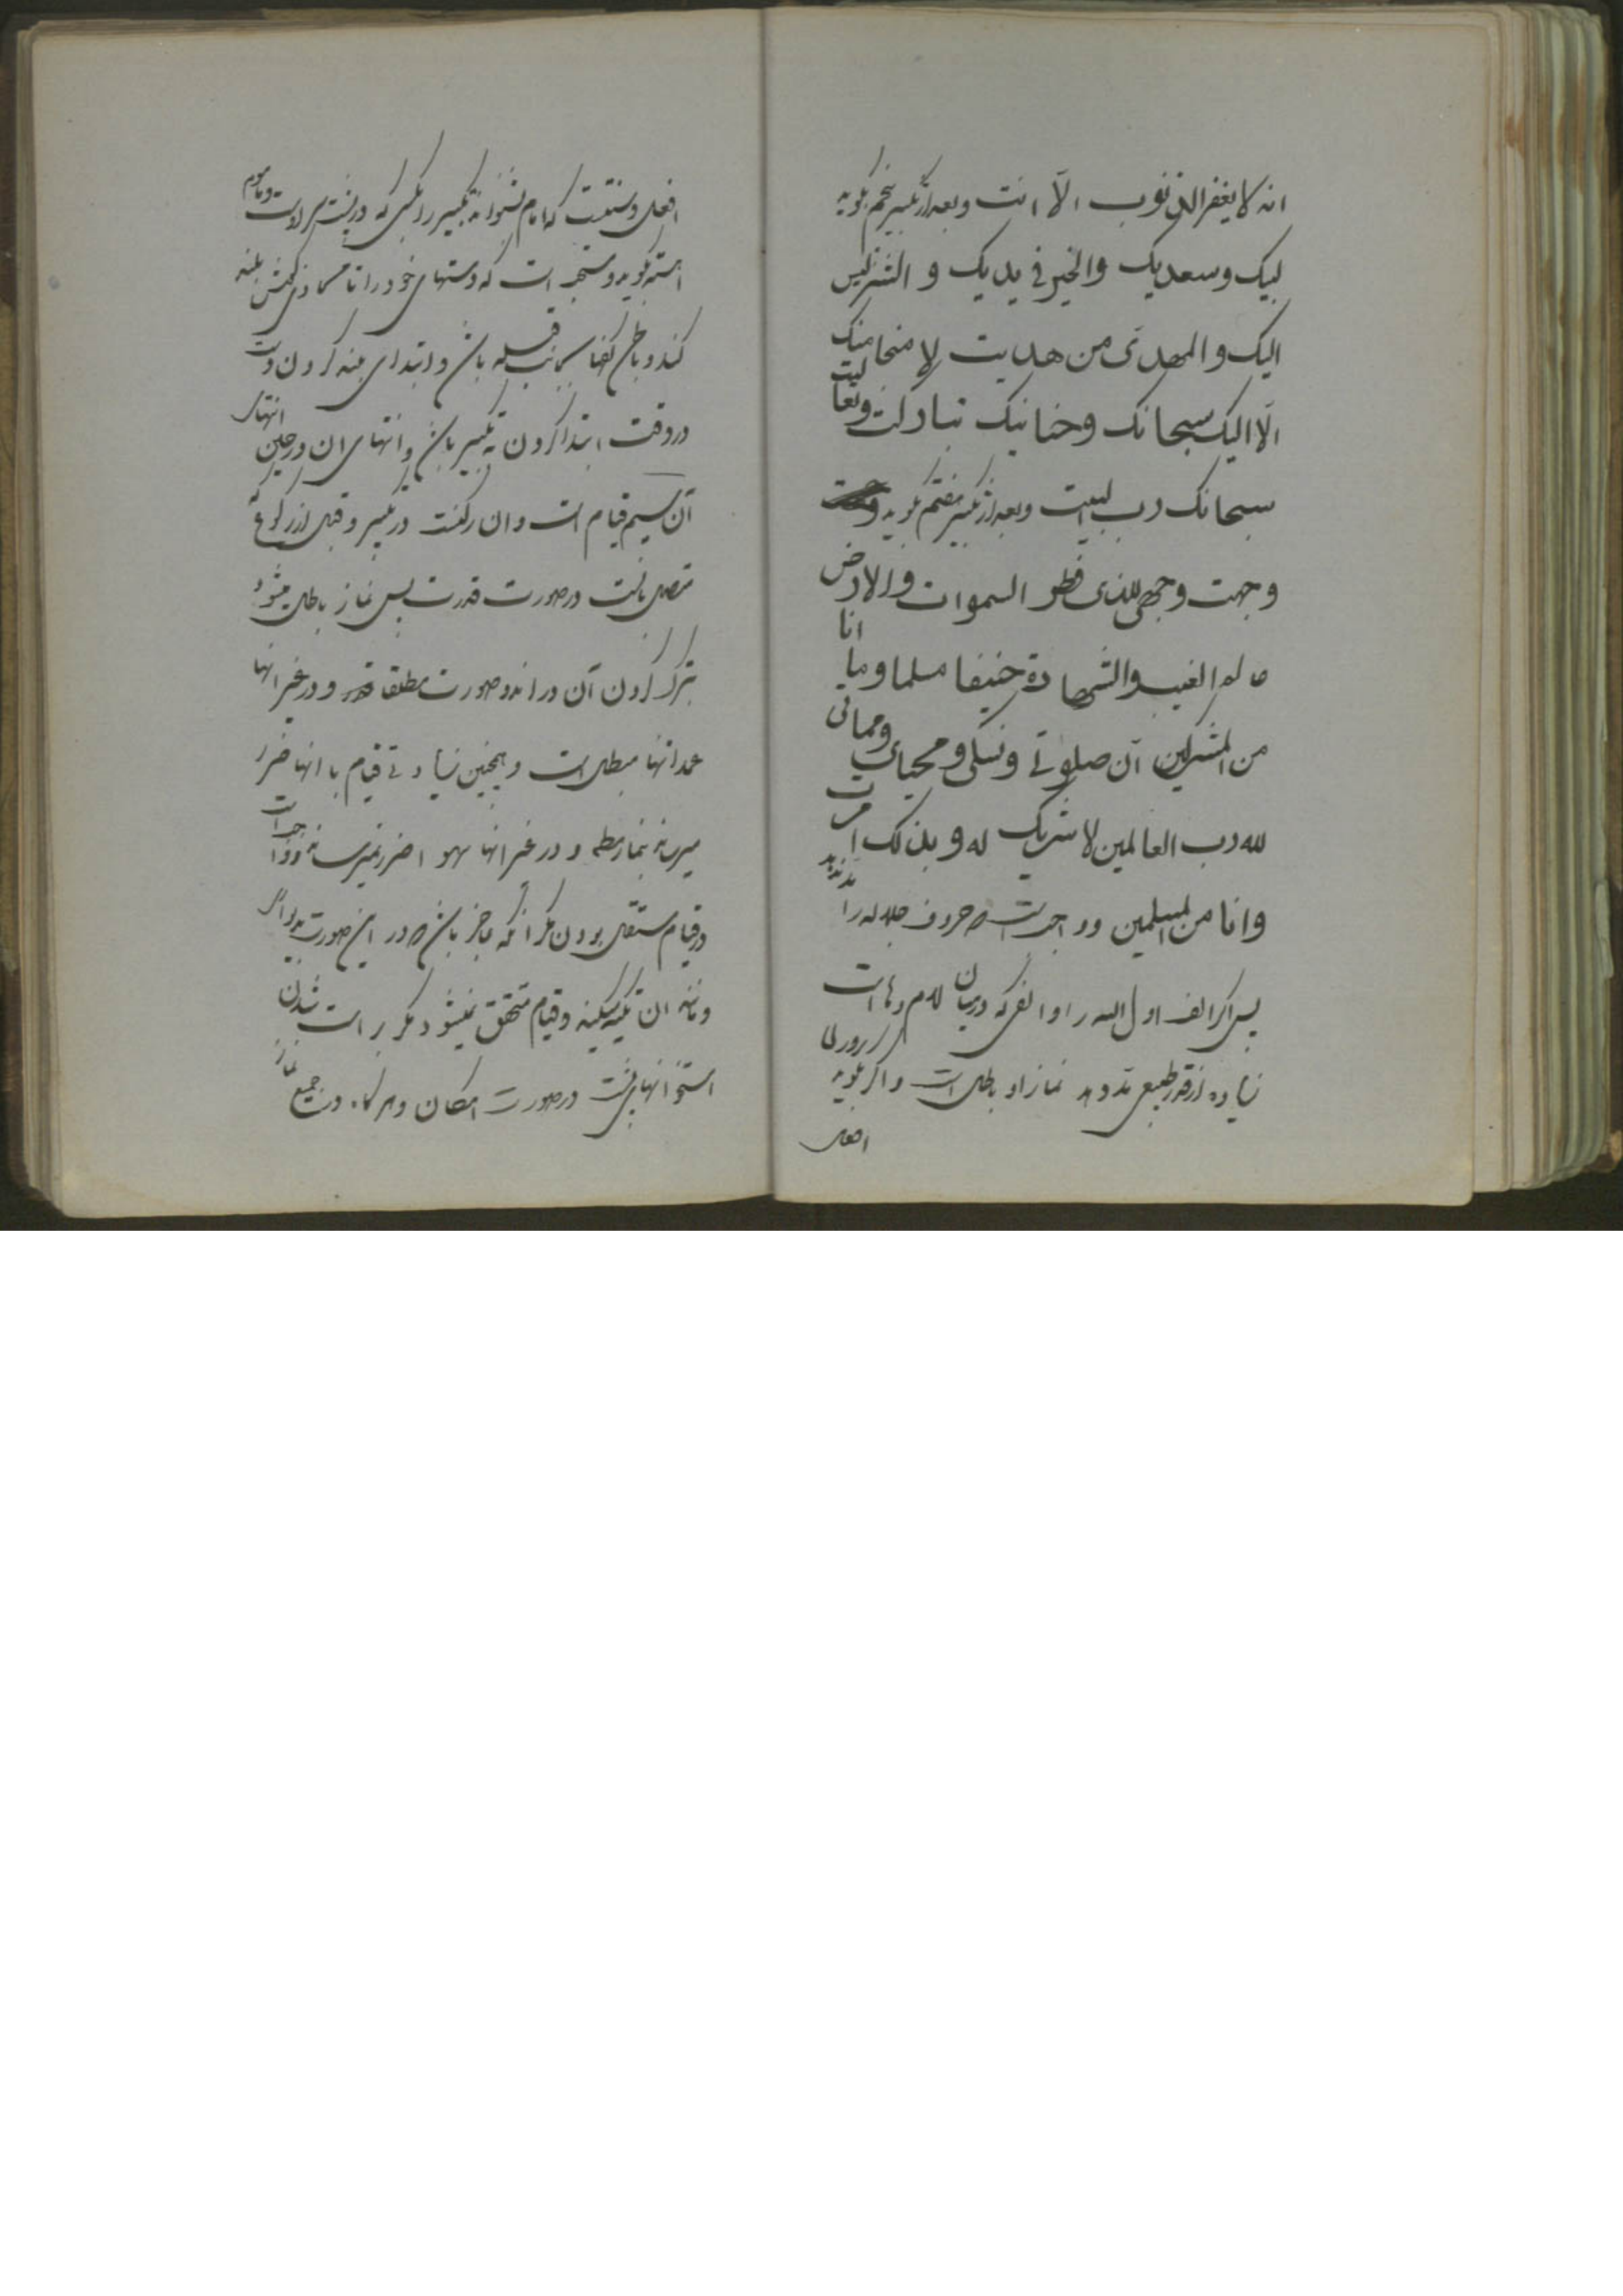 انه لا یغفر الذنوب الّا انت و بعد از تکبیر پنجم بگوید
لبیک وسعدیک والخیر فی یدیک و الشر لیس
الیک و المهدی من هدیت لا منجا منک
الّا الیک سبحانک وحنانیک تبارکت وتعالیت
سبحانک رب البیت وبعد از تکبیر هفتم بگوید
وجهت وجهی للذی فطر السموات والارض
عالم الغیب والشهادة حنیفا مسلما وما انا
من المشرکین ان صلوتی ونسکی ومحیای ومماتی
لله رب العالمین لا شریک له و بذلک امرت
وانا من المسلمین و واجب است که حروف جلاله را مد ندهد
پس اگر الف اول الله را و الفی که در میان لام و ها است
زیاده از قدر طبیعی مد دهد نماز او باطل است و اگر بگوید
افعل
افعل و سنت است که امام بشنواند تکبیر را بکسی که در پشت سر اوست و ماموم
آهسته بگوید و مستحب است که دستهای خود را تا محاذی گوشش بلند
کند و باطن کفها بجانب قبله باشد و ابتدای بلند کردن دست
در وقت ابتدا کردن به تکبیر باشد و انتهای آن در حین انتهای
آن سیم قیام است و آن رکنست در تکبیر و قبل از رکوع
متصل بآنست در صورت قدرت پس نماز باطل میشود
بترک کردن آن در این دو صورت مطلقا و در غیر آنها
عمدا تنها مبطل است و همچنین زیادتی قیام با آنها ضرر
میرساند بنماز مطلقا و در غیر آنها سهوا ضرر نمیرساند و واجب است
در قیام مستقل بودن مگر آنکه عاجز باشد که در این صورت بدیوار
و مانند آن تکیه میکند و قیام متحقق نمیشود مگر براست شدن
استخوانهای پشت در صورت امکان و هرگاه در جمیع نماز